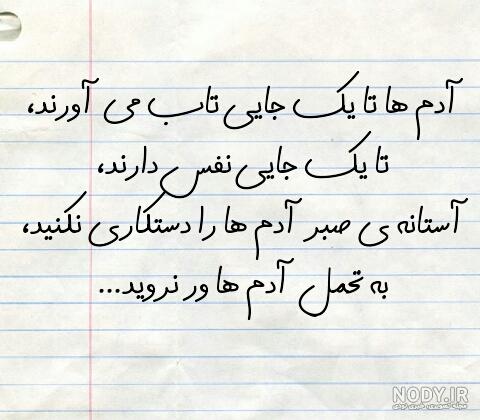 آدم ها تا یک جایی تاب می آورند،
تا یک جایی نفس دارند،
آستانه ی صبر آدم ها را دستکاری نکنید،
به تحمل آدم ها ور نروید...
NODY.IR